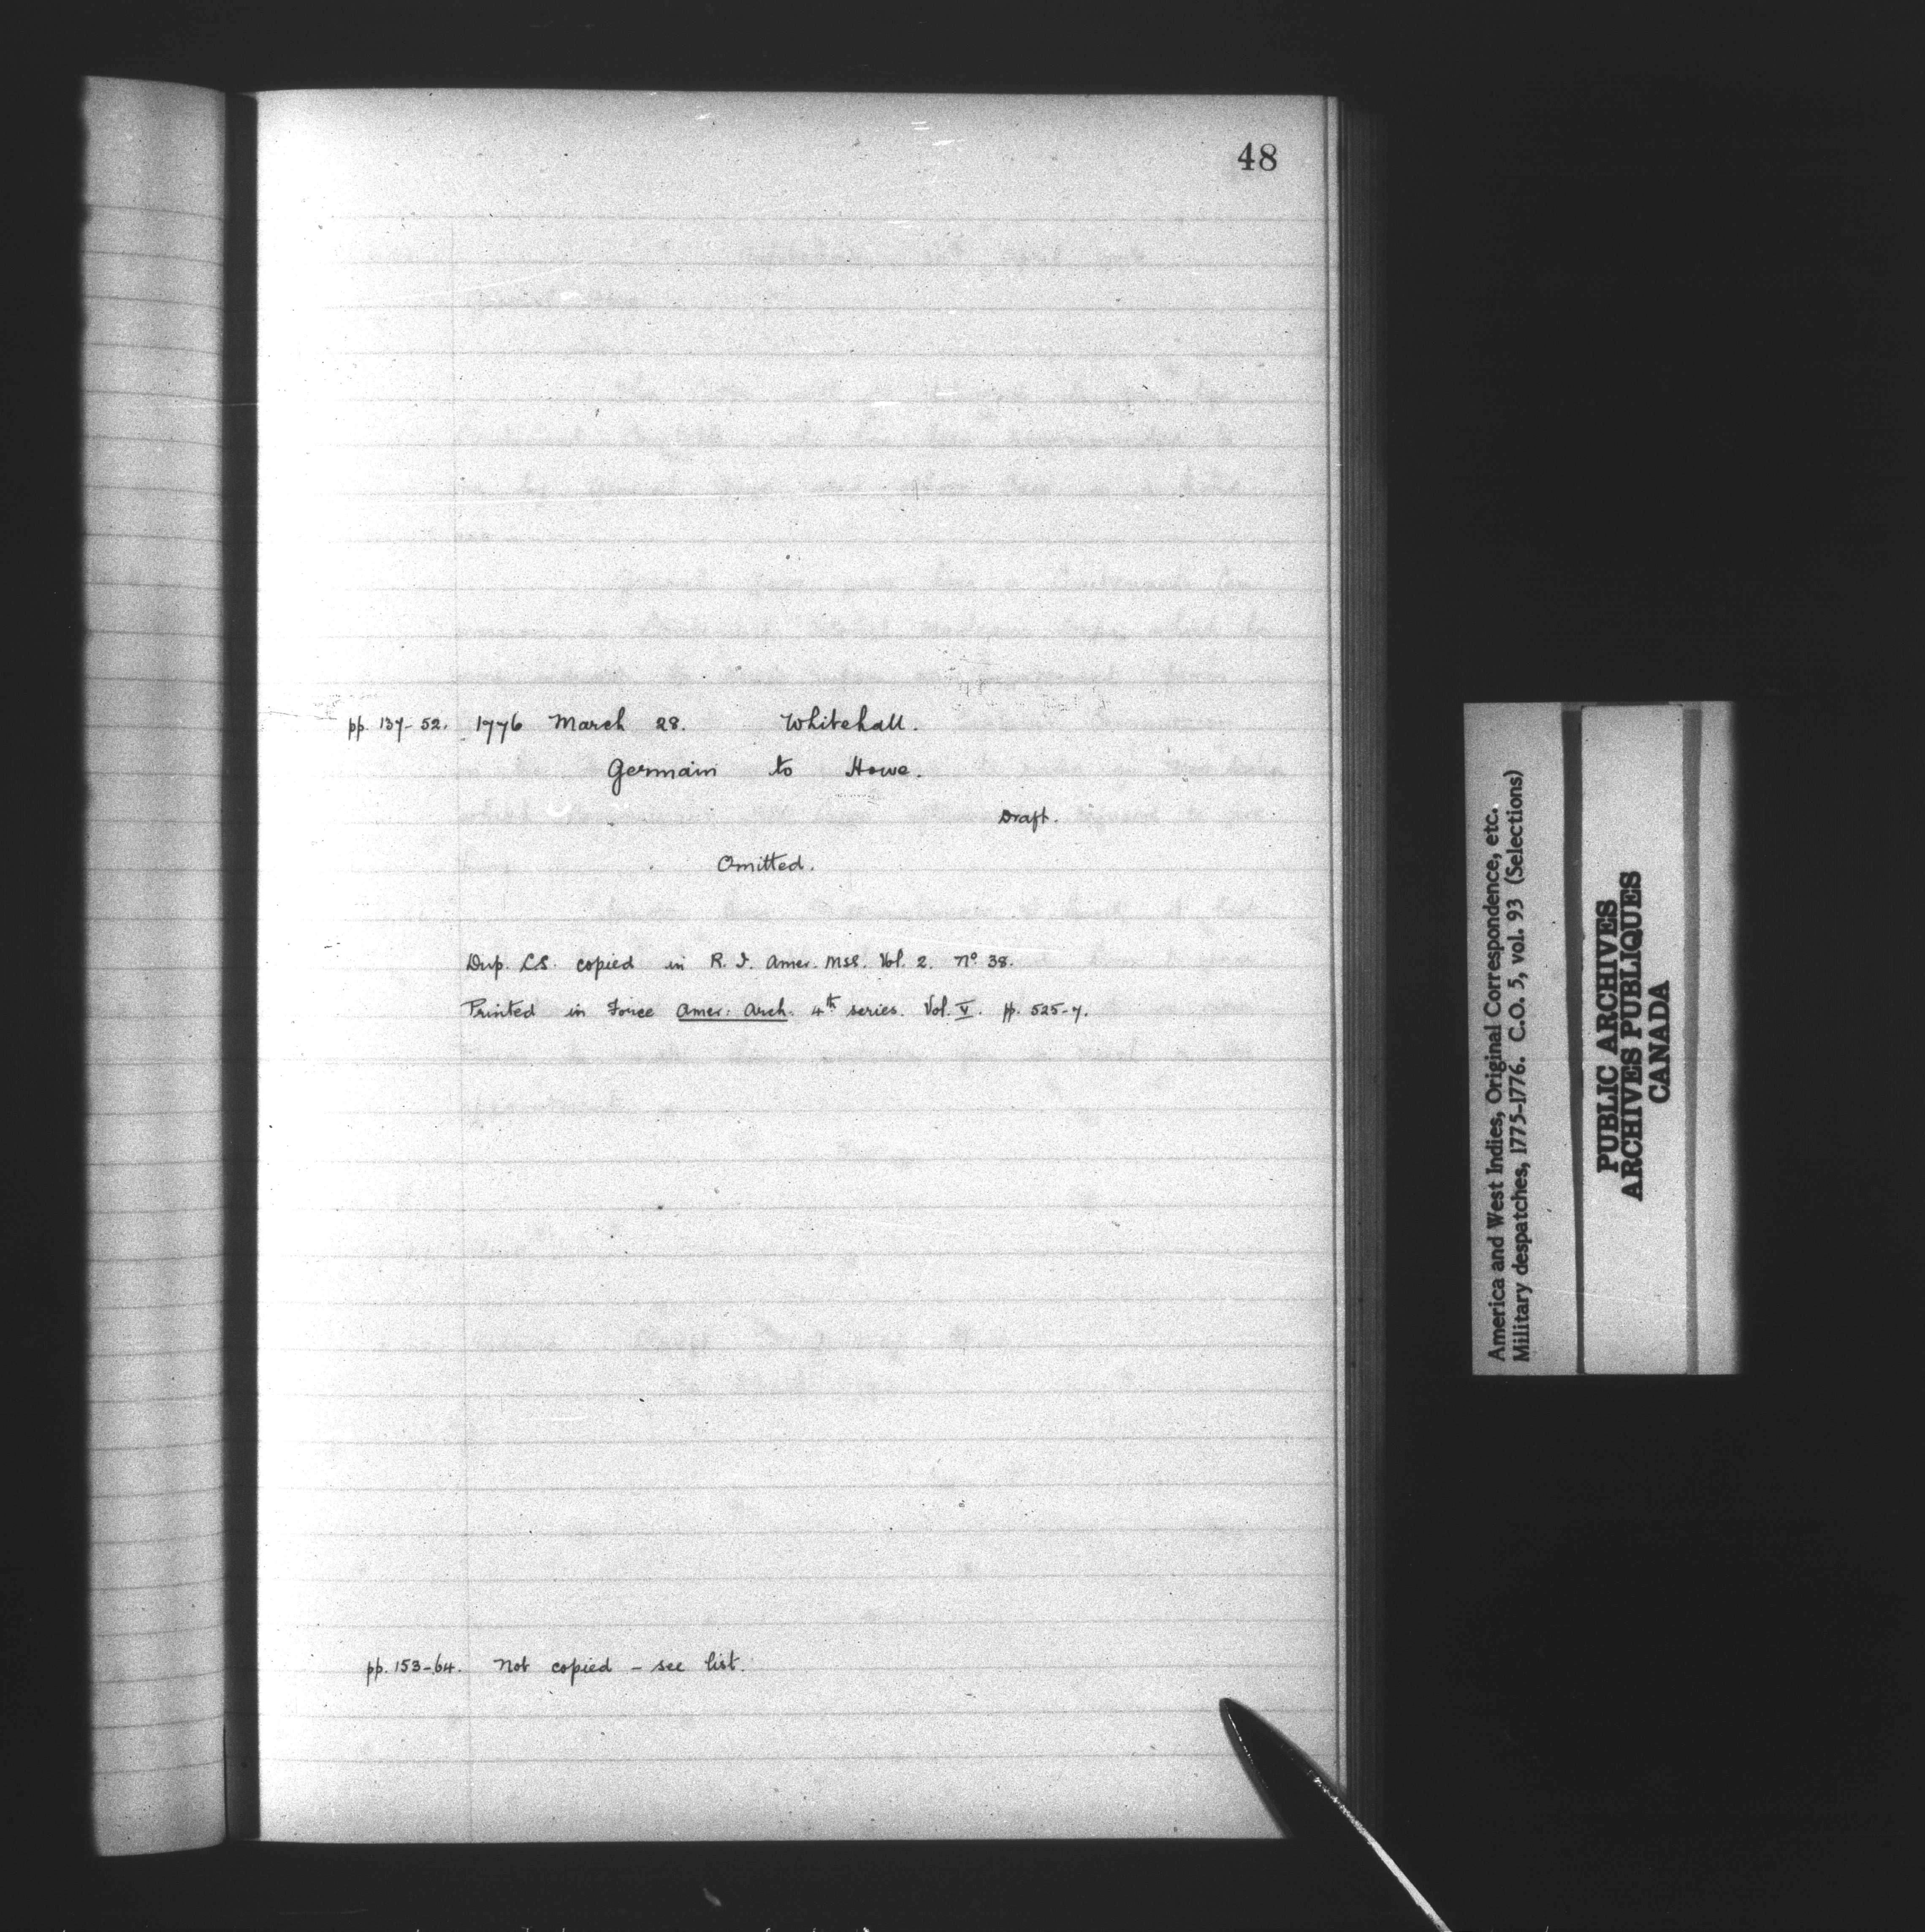 48
pp. 137-52. 1776 March 28. Whitehall.
Germain to Howe.
Draft.
Omitted.
Dup. LS. copied in R. I. Amer. Mss. Vol. 2. no. 38.
Printed in Force Amer. Arch. 4th series. Vol. V. pp. 525-7.
pp. 153-64. Not copied - see list.
America and West Indies, Original Correspondence, etc.
Military despatches, 1775-1776. C.O. 5, vol. 93 (Selections)
PUBLIC ARCHIVES
ARCHIVES PUBLIQUES
CANADA